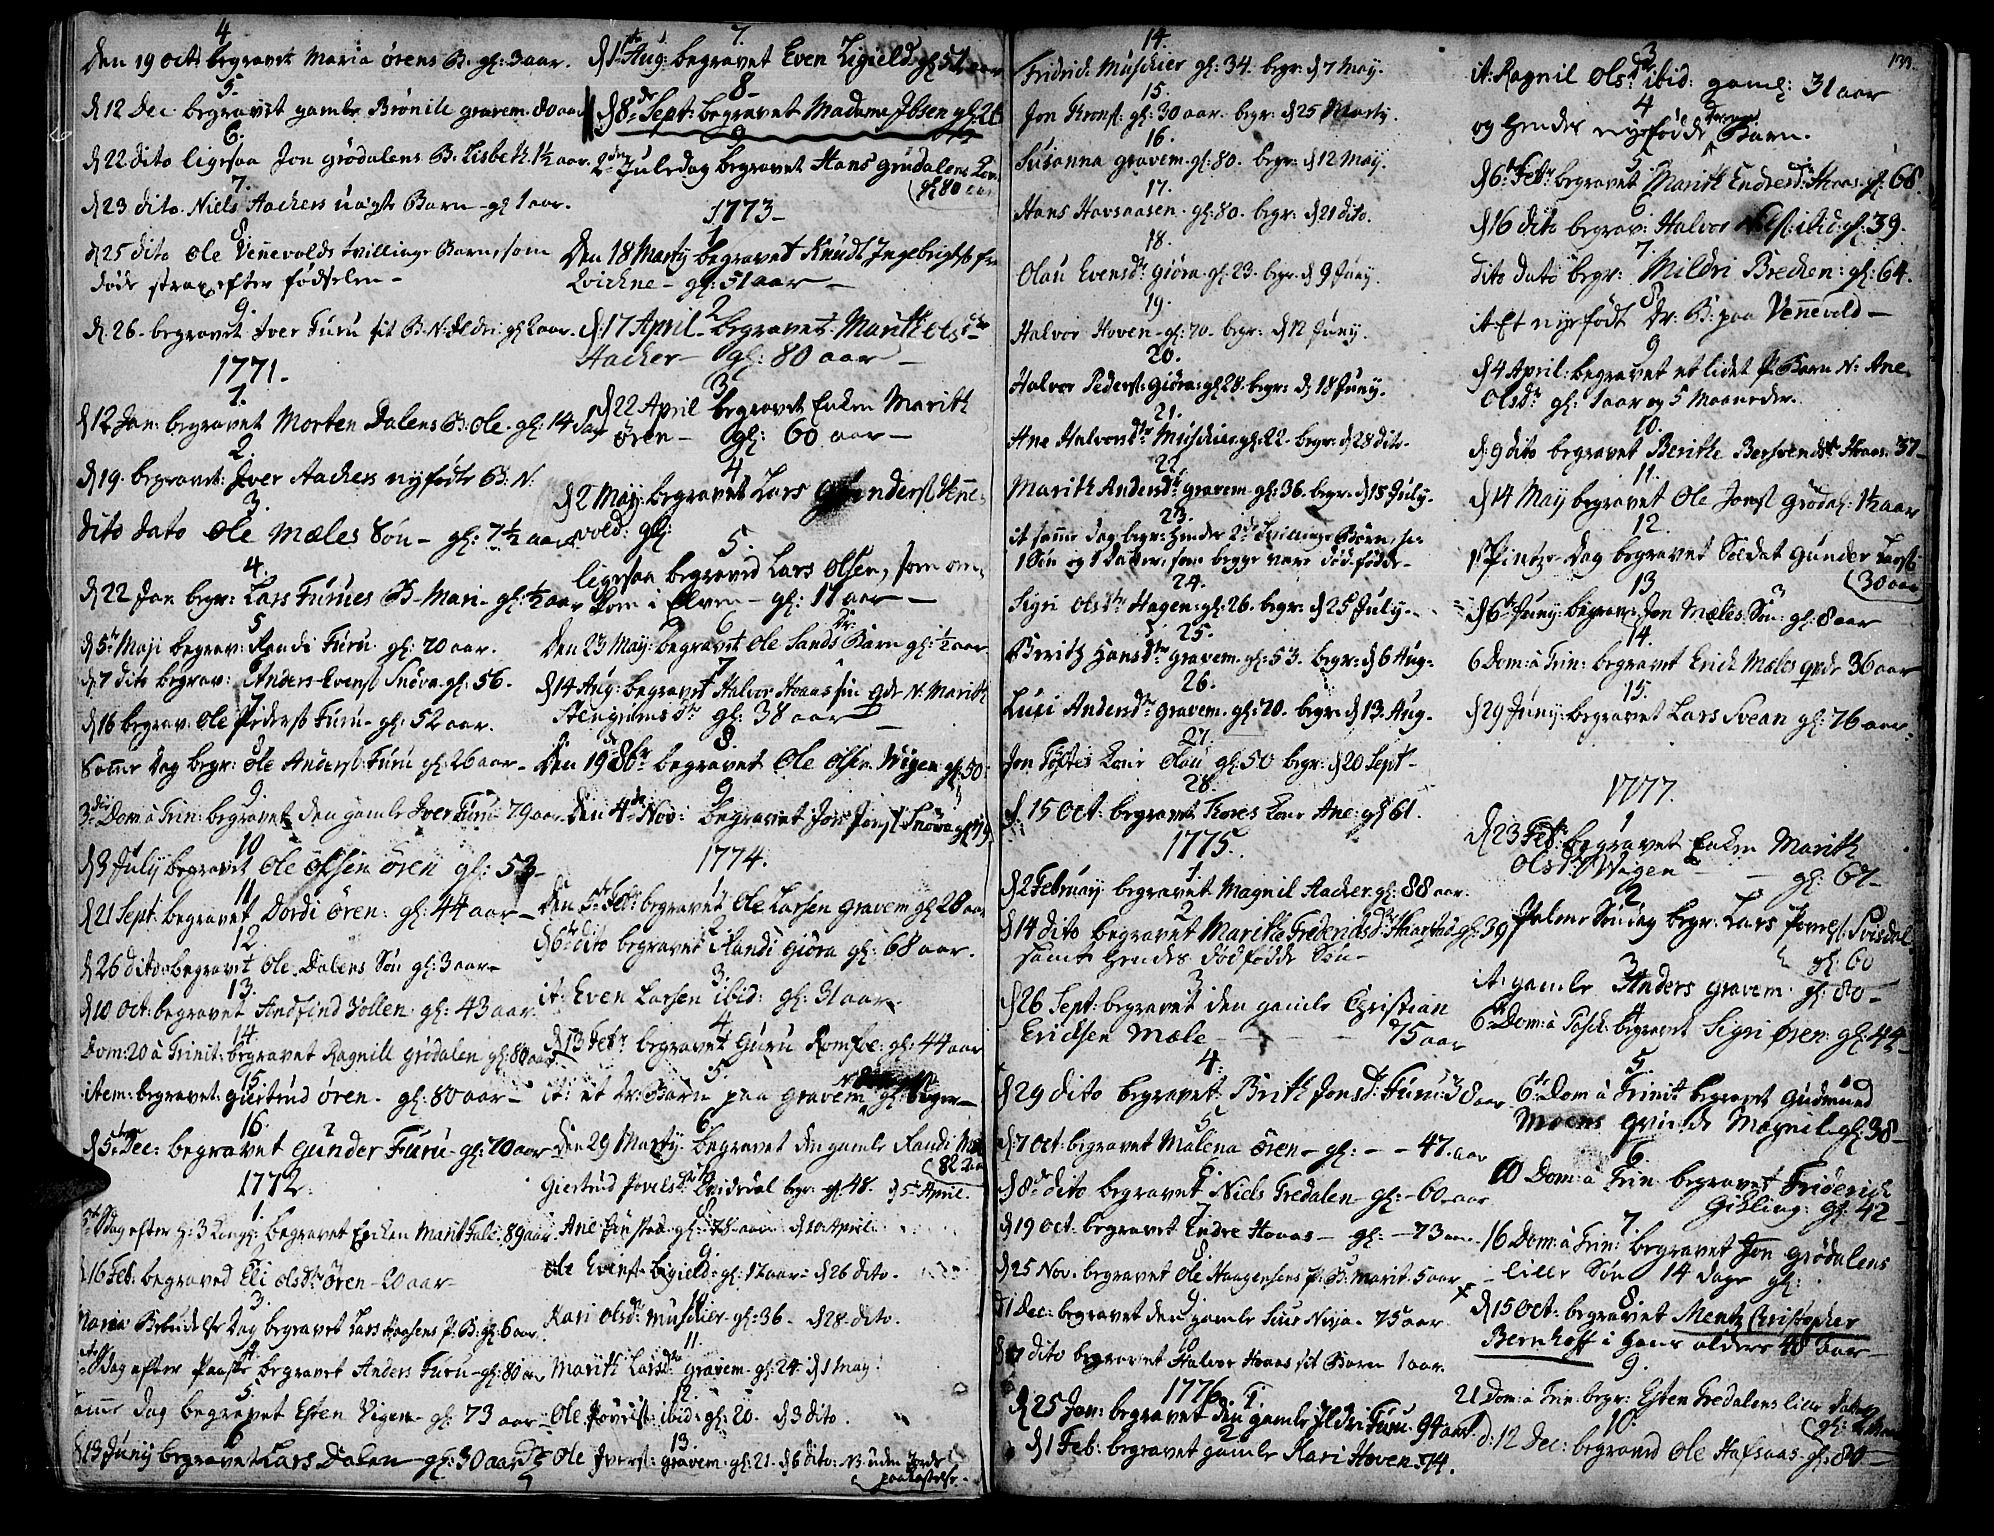 4
Den 19 Oct: begravet Maria Ørens B. gl: 3 aar.
5.
d 12 Dec begravet gamle Brønild Gravem. 80 aar
6.
d 22 dito ligesaa Jon Grødalens B. Lisbeth. 1½ aar.
7.
d 23 dito Niels Aackers uægte Barn gl 1 aar.
8
d 25 dito Ole Vennevolds tvillinge Barn, som
døde strax efter fødselen -
9.
d. 26 - begravet Iver Furu sit B. N: Ildri gl 2 aar.
1771.
1.
d 12 Jan: begravet Morten Dalens B: Ole. gl: 14 dag
2.
d 19. begravet: Iver Aackers nyfødte B: N:
3.
dito dato Ole Mæles Søn - gl: 7½ aar
4.
d 22 Jan begr: Lars Furues B. Mari - gl: ½ aar
5
d 5te Maji begrav: Randi Furu. gl: 70 aar.
d 7 dito begrav: Anders Evens: Snøva gl: 56.
7
d 16 begrav: Ole Peders: Furu - gl: 52 aar.
8
Samme Dag begr: Ole Anders: Furu gl: 26 aar -
9.
3die Dom: à Trin: begravet den gamle Iver Furu 79 aar
10
d 3 July begravet Ole Olsen Ören gl: 53 -
11
d 21 Sept: begravet Dordi Ören: gl: 44 aar -
12
d 26 dito begravet Ole Dalens Søn gl: 3 aar -
13.
d 10 Oct: begravet Andfind Vollen. gl: 43 aar.
14.
Dom: 20 à Trinit: begravet Ragnill Grødalen gl: 80 aar
15.
item: begravet Giertrud Ören. gl: 80 aar -
16.
d 5te Dec: begravet Gunder Furu gl: 70 aar -
1772.
1.
dag efter H: 3 Kong: begravet Encken Marit Fale. 89 aar.
d 16 Feb: begraved Eli Olsdtr Ören - 20 aar -
3.
Maria Bebudelse Dag begravet Lars Haasens P. B: gl: 6 aar
4.
dag efter Paaske begravet Anders Furu - gl: 80 aar
5.
samme dag begravet Esten Vigen - gl: 73 aar -
6
d 13 Juny begravet Lars Dalen - gl: 30 aar
7.
d 1te Aug: begravet Even Ligield gl: 51 aar
8-
d 8de Sept: begravet Madame Ibsen gl: 26
9
2den Juledag begravet Hans Grødalens Kone
(gl: 80 aar
1773 -
1
Den 18 Marty begravet Knudt Ingebrights: fra
Qvickne - gl: 51 aar -
2
d: 17 April - begravet Marith Olsdtr
Aacker - gl: 80 aar -
3
d 22 April begravet Enken Marith
Ören - gl: 60 aar -
4
d 2 May: begravet Lars Gunders: Venne-
vold: gl:
5.
ligesaa begraved Lars Olsen, som om-
kom i Elven - gl: 17 aar -
6
Den 23 May: begravet Ole Sands Dr. Barn gl: ½ aar
7
d 14 Aug: begravet Halvor Haas sin qde N: Marith
Stengrimsdtr gl: 38 aar -
8.
Den 19 8br begravet Ole Olsen Wigen gl: 50
9
den 4de Nov: begravet Joes Jons: Snøva gl: 19
1774.
1
Den 5te Feb: begravet Ole Larsen Gravem gl 28 aar
2
d 6te dito begravet Randi Giöra gl: 68 aar.
3.
it: Even Larsen ibid: gl: 31 aar
4.
d 13 Febr begravet Guru Romfoe: gl: 44 aar
5.
it: et Dr: Barn paa Gravem gl: uger -
6.
den 29 Marty begravet den gamle Randi
(82 aar
7
Giertrud Povelsdtr Qvidsdal begr. gl 48. d 5te April.
8
Ane gl: 78 aar d 10 April.
9.
Ole Evens: Ligield: gl: 17 aar - d 26 dito.
10
Kari Olsdtr Muschier gl: 36 - d 28 dito.
11.
Marith Larsdtr Gravem. gl: 24. d 1 May:
12.
Ole Povels: ibid: gl: 20. d 3 dito.
13.
Ole Ivers: Gravem. gl: 21. d 6 dito: N: uden Jords
paakastelse.
14.
Fridrich Muschier gl: 34. begr: d 7 May.
15.
Jon Krons: gl: 30 aar. begr: d 25 Marty.
16.
Susanna Gravem. gl: 80. begr: d 12 May.
17.
Hans Havsaasen. gl: 80. begr: d 21 dito.
18.
Olau Evensdr Giöra. gl: 23. begr: d 9 Juny.
19.
Halvor Hoven. gl: 70. begr: d 12 Juny.
20.
Halvor Peders: Giöra: gl 28. begr: d 18 Juny.
21.
Ane Halvorsdtr Muschier gl: 22. begr: d 28 dito.
22.
Marith Andersdtr Gravem gl: 36. begr: d 18 July.
23.
it samme dag begr: hendes 2de Tvillinge Børn,
1 Søn og 1 Datter, som begge vare død fødde -
24.
Sigri Olsdtr Hagen: gl: 26. begr: d 25 July. -
25.
Berith Hansdtr Gravem. gl: 53. begr: d 6 Aug:
26.
Luci Andersdtr Gravem. gl: 70. begr: d 13 Aug.
27.
Jon Toftes Kone Olau gl: 50 begr: d 20 Sept -
28.
d. 15 Oct: begravet Tores Kone Ane: gl 61.
1775.
1.
d 2 February begravet Magnil Aacker. gl: 88 aar.
2
d 14 dito begravet Marithe Fredrichsdtr Haarstad. gl: 39
samt hendes dødfødde Søn -
3
d 26 Sept: begravet den gamle Christian
Ericksen Mæle - - - 75 aar
4.
d 29 dito begravet: Brith Jonsdtr Furu: 38 aar
5
d 7 Oct: begravet Malena Ören - gl: - - 47. aar
6
d 8de dito begravet Niels Fredalen - gl: - 60 aar
7
d 19 Oct: begravet Endre Haaas - gl: - 73 aar
8
d 25 Nov. begravet Ole Haagensens P. B: Marit. 5 aar
9
d 1 Dec: begravet den gamle Siur Nisja - 75 aar
10
dito begravet Halvor Haas sit Barn 1 aar.
1776.
1.
d 25 Jan: begravet den gamle Ildri Furu. 94 aar
2
d 1 Feb: begravet gamle Kari Hoven. 74.
133.
3
it: Ragnil Olsdtr ibid: gaml: 31 aar
4
og hendes nyfødde Barn.
5.
d 6te Febr begravet Marith Endresdtr Haas. gl: 68.
6
d 16 dito begrav: Halvor Nils: ibid: gl: 39.
7.
dito dato begr: Mildri Brecken: gl: 64.
8
it: Et nyefødt Dr: B: paa Vennevold -
9
d 4 April: begravet et lidet P. Barn N: Ane
Olsdtr gl: 1 aar og 5 Maaneder.
10.
d: 9 dito begravet Berithe Bersvendsdtr Haas: 37 -
11.
d 14 May begravet Ole Jons: Grødal: 1½ aar
12.
1ste Pintze-dag begravet Soldat Gunder Lars:
(30 aar
13
d 6te Juny: begrav: Jon Mæles Søn gl: 8 aar
14.
6 Dom: à Trin: begravet Erich Mæles qvde 36 aar
15.
d 29 Juny: begravet Lars Svean gl: 76 aar
1777.
1
d 23 Feb: begravet Enken Marith
Olsdtr Wigen - - gl: 67 -
2
Palme Søndag begr: Lars Svisdal
gl: 60
3
it: gamle Anders Gravem gl: 80 -
4
6te Dom: à Pasch: begravet Sigri Ören: gl: 44 -
5.
6te Dom à Trinit: begravet Gudmund
Moens Qvinde Magnil - gl: 38 -
6.
10 Dom: à Trin: begravet Friderich
Gikling: gl: 42 -
7.
16 Dom: à Trin: begravet Jon Grødalens
lille Søn 14 dage gl:
8.
d 15 Oct: begravet Mentz Christopher
Bernhoff i hans alders 48 aar -
9.
21 Dom: à Trin: begr: Esten Fredalens lille datter
10
d: 12 Dec: begraved Ole Hafsaas. gl: 80 -